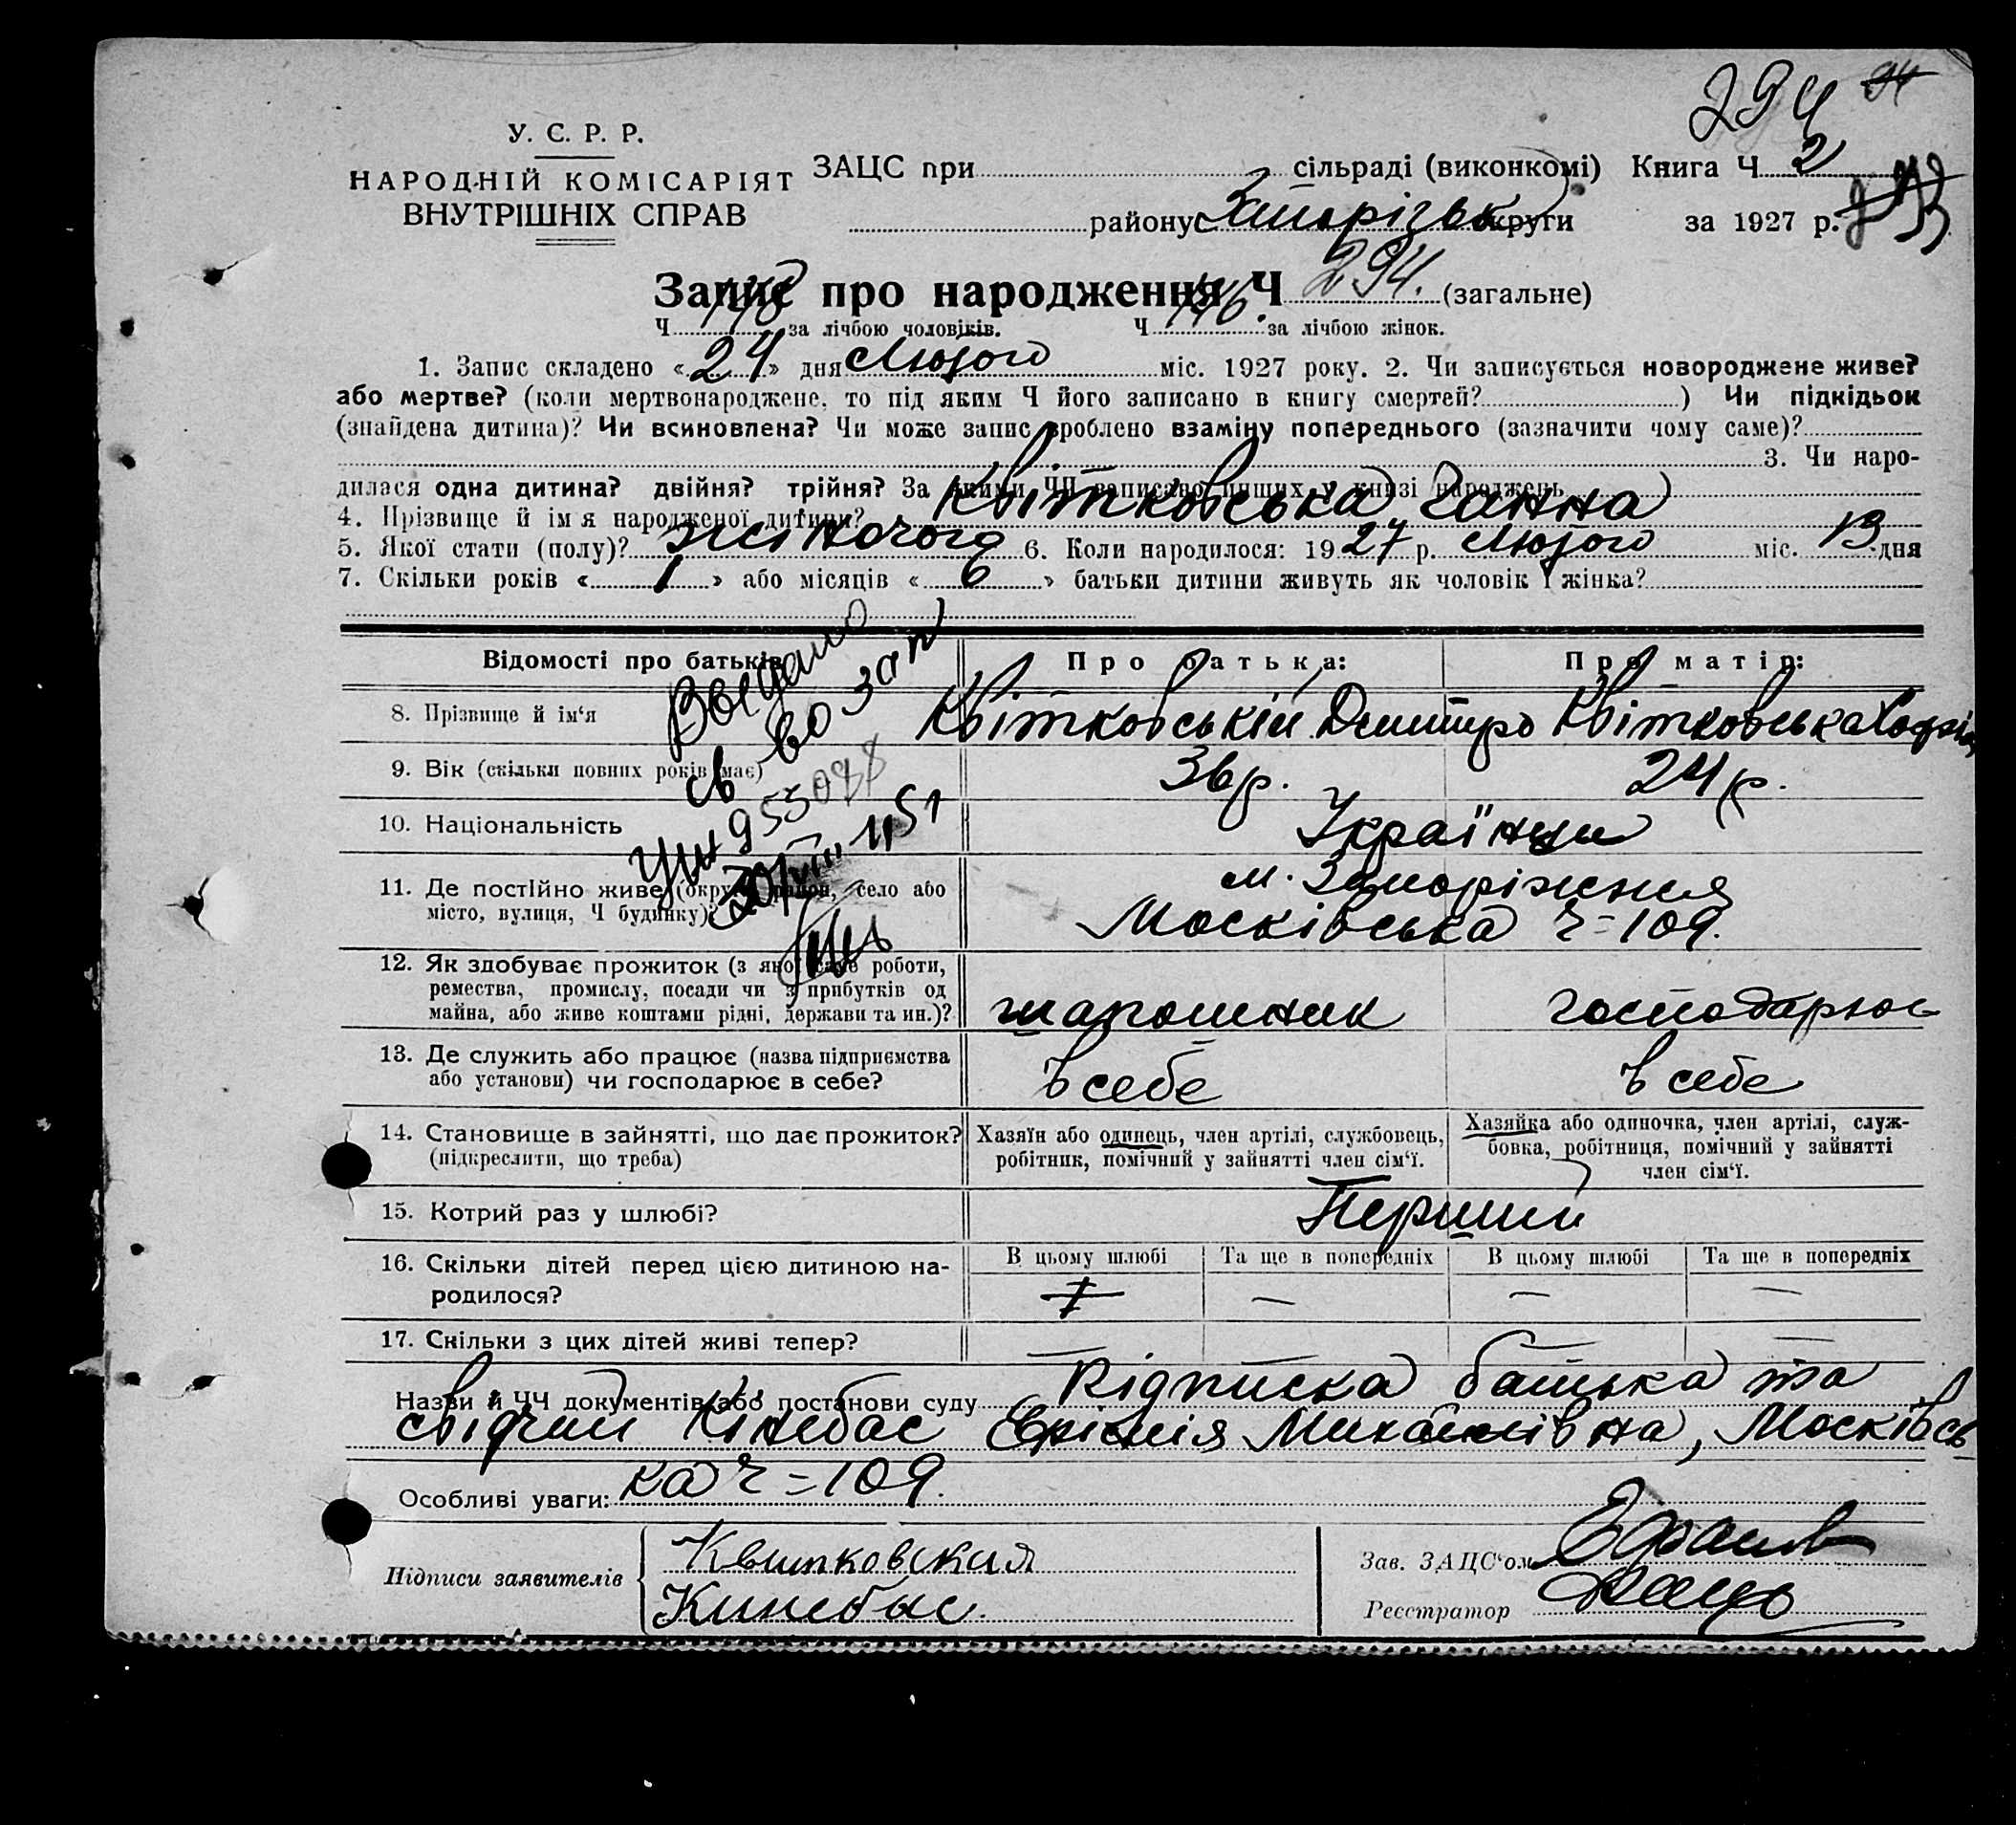 294
У. С. Р. Р.
НАРОДНІЙ КОМІСАРІЯТ
ВНУТРІШНІХ СПРАВ
ЗАЦС при сільраді (виконкомі) Книга Ч 2
району Запорізьк округи за 1927 р.
Запис про народження Ч 294. (загальне)
Ч за лічбою чоловіків. Ч 146. за лічбою жінок.
1. Запис складено « 24 » дня Лютого міс. 1927 року. 2. Чи записується новороджене живе?
або мертве? (коли мертвонароджене, то під яким Ч його записано в книгу смертей? ) Чи підкідьок
(знайдена дитина)? Чи всиновлена? Чи може запис зроблено взаміну попереднього (зазначити чому саме)?
3. Чи наро-
дилася одна дитина? двійня? трійня? За якими ЧЧ записано инших у книзі народжень
4. Прізвище й ім'я народженої дитини? Квітковська Ганна
5. Якої стати (полу)? жіночого 6. Коли народилося: 1927 р. Лютого міс. 13 дня
7. Скільки років « 1 » або місяців « 6 » батьки дитини живуть як чоловік і жінка?
Відомості про батьків Про батька: Про матір:
Выдано
св во зап
8. Прізвище й ім'я Квітковський Дмитро Квітковська
9. Вік (скільки повних років має) 36 р. 24 р.
10. Національність Українци
11. Де постійно живе (округа, район, село або
місто, вулиця, Ч будинку)? м. Запоріжжя
Московська ч=109.
12. Як здобуває прожиток (з якої саме роботи,
ремества, промислу, посади чи з прибутків од
майна, або живе коштами рідні, держави та ин.)? шапошник господарює
13. Де служить або працює (назва підприємства
або установи) чи господарює в себе? в себе в себе
14. Становище в зайнятті, що дає прожиток?
(підкреслити, що треба)
Хазяїн або одинець, член артілі, службовець,
робітник, помічний у зайнятті член сім'ї.
Хазяйка або одиночка, член артілі, служ-
бовка, робітниця, помічний у зайнятті
член сім'ї.
15. Котрий раз у шлюбі? Перший
16. Скільки дітей перед цією дитиною на-
родилося?
В цьому шлюбі Та ще в попередніх В цьому шлюбі Та ще в попередніх
— — —
17. Скільки з цих дітей живі тепер? — —
Назви й ЧЧ документів або постанови суду Підписка батька та
свідчин Кінебас Михайлівна, Московсь
Особливі уваги: ка ч=109.
Підписи заявителів Квитковская
Кинебас.
Зав. ЗАЦС'ом
Реєстратор